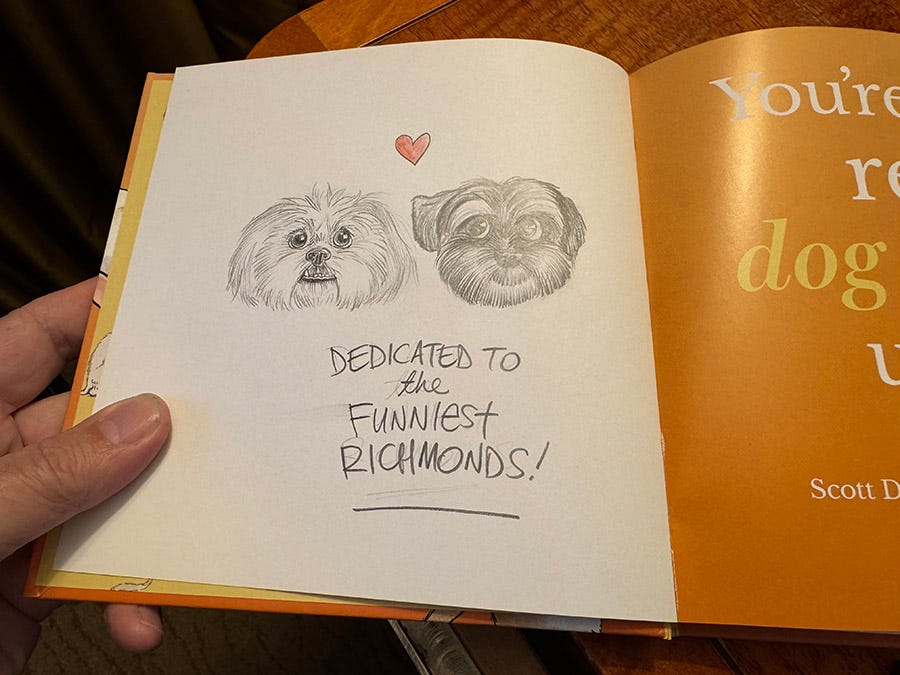 DEDICATED TO
the
FUNNIEST
RICHMONDS!
You're
re
dog
u
Scott D